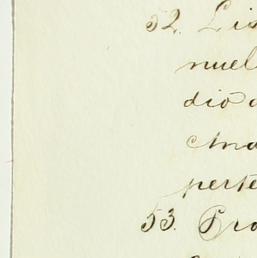 52. Lis
nuel
dió a
Ana
perte
53. Pro